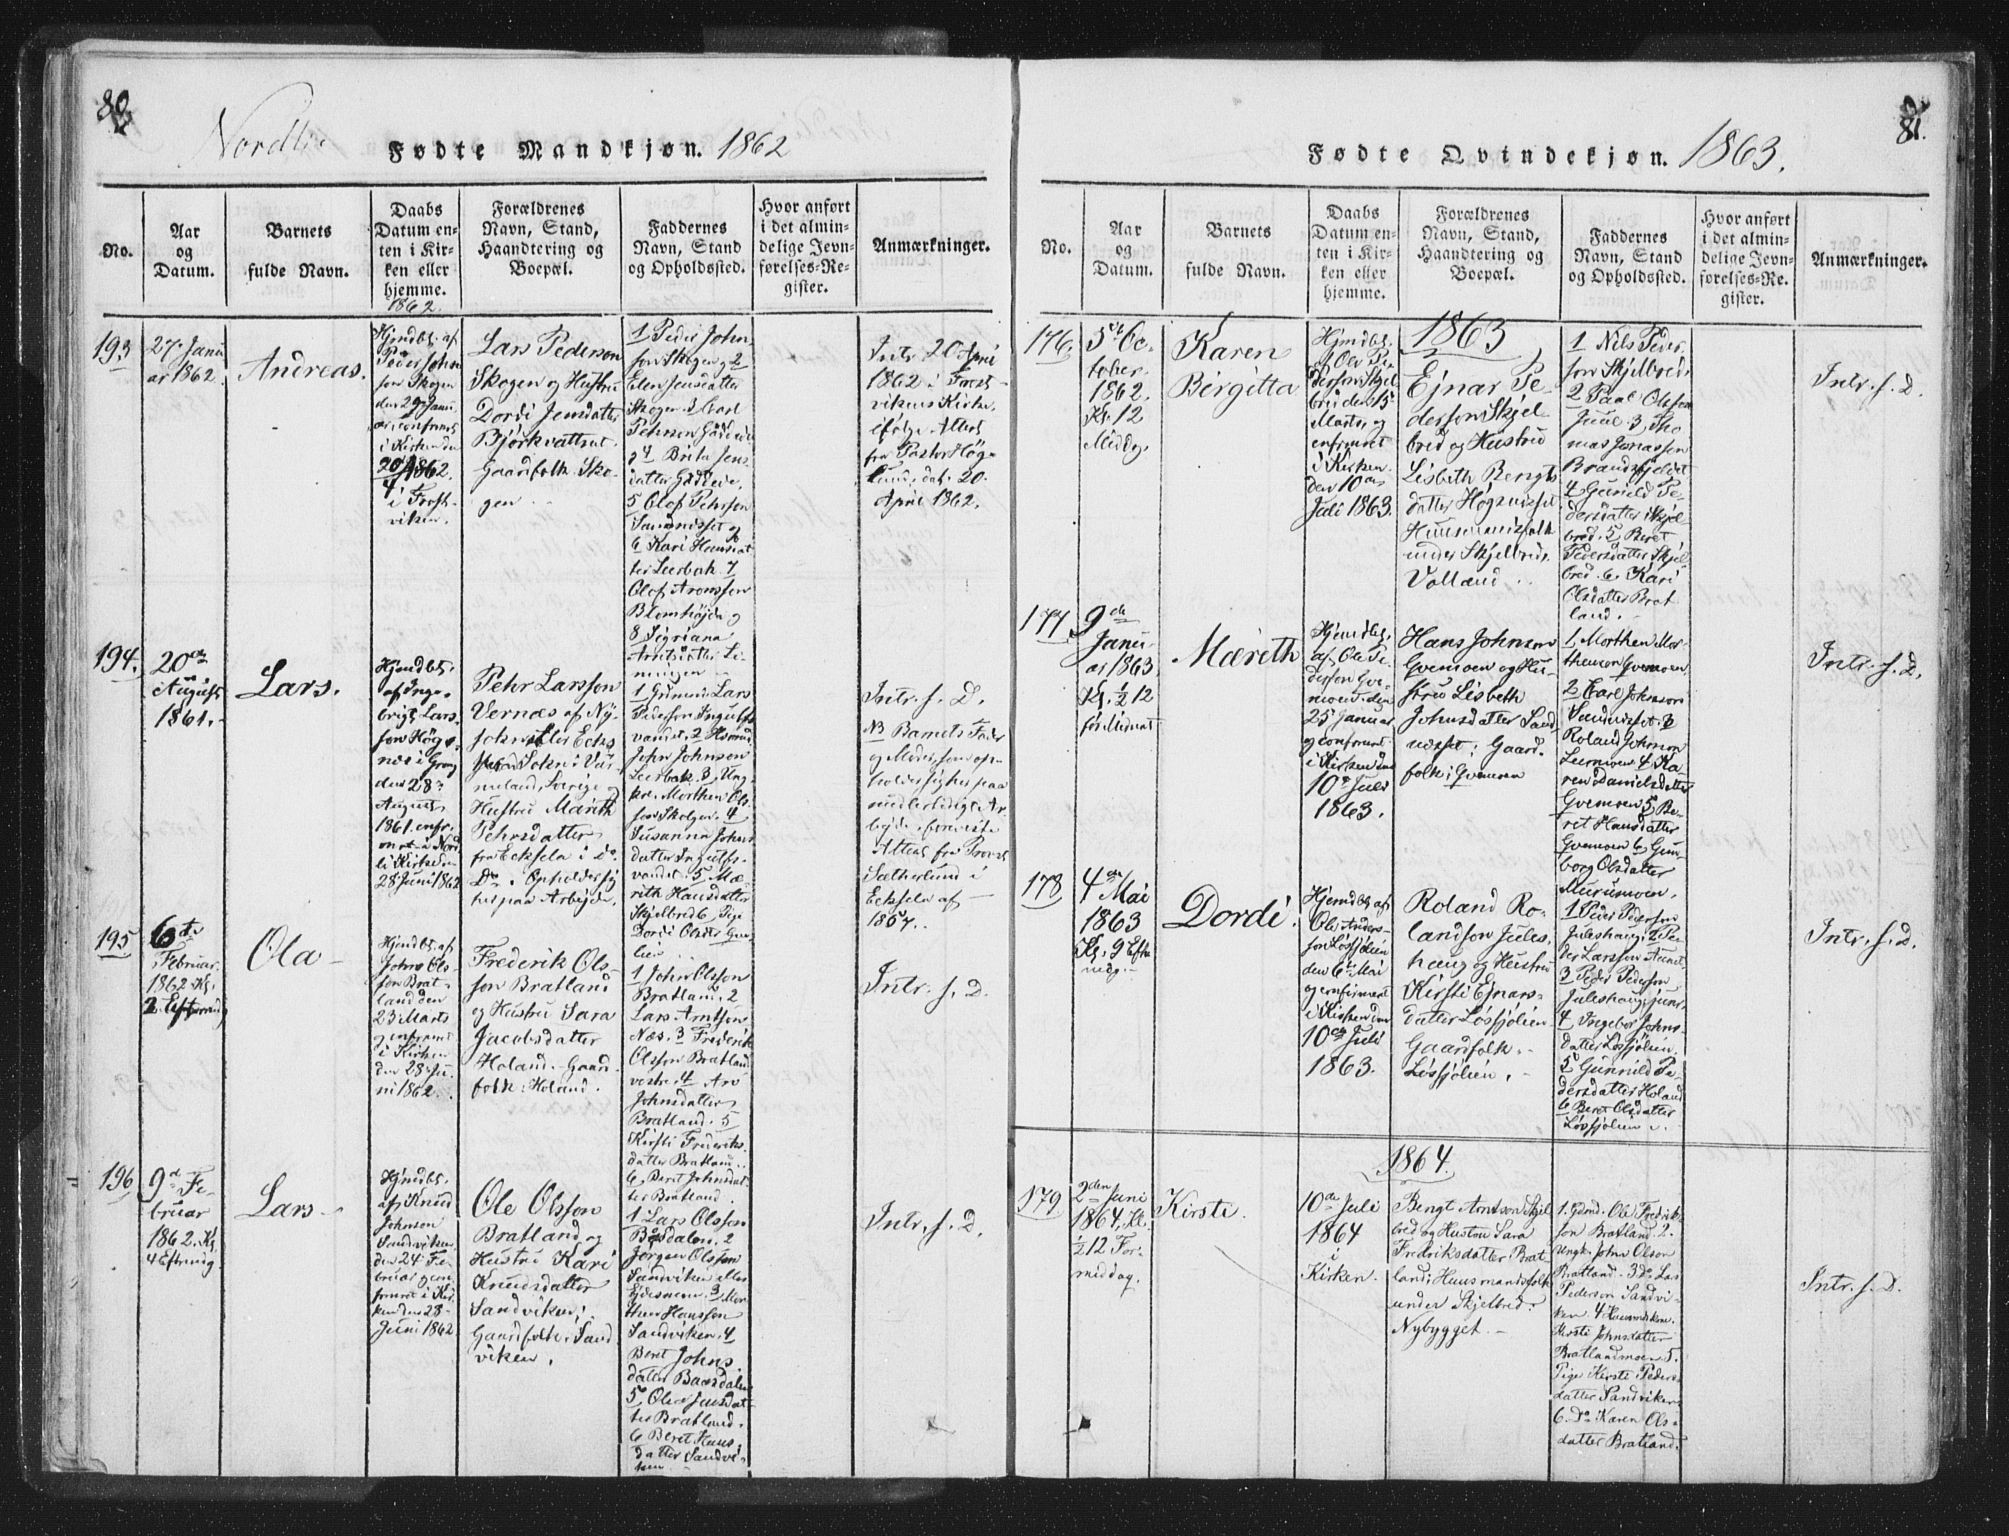 80.
Nordlie
Fødte Mandkjøn. 1862
No.
Aar
og
Datum.
Barnets
fulde Navn.
Daabs
Datum en-
ten i Kir-
ken eller
hjemme.
1862.
Forældrenes
Navn, Stand,
Haandtering og
Boepæl.
Faddernes
Navn, Stand
og Opholdssted.
Hvor anført
i det almin-
delige Jevn-
førelses-Re-
gister.
Anmærkninger.
193
27. Janu
ar 1862.
Andreas.
Hjmdbt. af
Peder John
son Skogen
den 29. Janu
ar, confirmt
i Kirken den
20/4 1862.
i Frost-
viken.
Lars Pederson
Skogen og Hustru
Dordi Jensdatter
Björkvattnet.
Gaardfolk Sko-
gen
1 Peder John
son Skogen, 2
Elen Jensdatter
Skogen 3
Pehrson Gäddede
4 Brita Jens
datter Gäddede,
5 Olof Pehrson
6 Kari Hansdat
ter Leerbak 7
Olof Aronsson
Blomhöjden
8 Sigriana
Intr. 20 April
1862 i Frost-
vikens Kirke,
ifølge Attest
fra Pastor Hög-
lund, dat. 20.
April 1862.
194.
20de
August
1861.
Lars.
Hjmdbt.
af Inge-
brigt Lars-
son
næs i Grong
den 28.
August
1861.
i Kirken
28. Juni 1862
Pehr Larsson
Vernæs af Ny-
Sogn i Vär-
meland, Sverige og
Hustru Märith
Pehrsdatter
Do. Opholder sig
her paa Arbejde.
1 Lars
Pederson Ingulfs
vandet, 2
John Johnson
Leerbak 3. Ung-
kar Morthen Ols
son Skogen. 4
Susanna Johns
datter Ingulfs-
vandet. 5 Mæ
rith Hansdatter
Skjelbred 6, Pige
Dordi Olsdtr
Intr. f. D.
NB Barnets Fader
og Moder, som op-
holder sig her paa
midlertidigt Ar-
bejde,
Attest fra Provst
Sætherlund i
af
1857.
195
6te
Februar
1862. Kl.
2 Efterm
Ola
Hjmdbt. af
John Ols-
son Brat-
land den
23 Marts
og confirmt
i Kirken
den 28. Ju-
ni 1862.
Frederik Ols-
son Bratland
og Hustru Sara
Jacobsdatter
Holand. Gaard-
folk: Holand.
1 John Olsson
Bratland, 2
Lars Arntson
Næs. 3 Frederik
Olsson Bratland
4
Johnsdatter
Bratland. 5
Kirsti Frederiks
datter Bratland.
6 Beret Johnsdat
ter Bratland.
Intr. f. D.
196
9de Fe-
bruar
1862. Kl.
4 Eftmidg.
Lars
Hjmdbt.
af Knud
Johnson
Sandviken
den 24. Fe
bruar og con
firmt i Kir
ken den 28-
Juni 1862.
Ole Olsson
Bratland og
Hustru Kari
Knudsdatter
Sandviken;
Gaardfolk: Sand
viken.
1 Lars Olsson
2
Jørgen Olsson
Sandviken
3 Mor
then Hansson
Sandviken. 4
Beret Johns
datter
5, Olea Jensdat-
ter Bratland.
6 Beret Hans
datter Sandvi-
ken
81.
Fødte Qvindekjøn. 1863.
No.
Aar
og
Datum.
Barnets
fulde Navn.
Daabs
Datum en-
ten i Kir-
ken eller
hjemme.
Forældrenes
Navn, Stand,
Haandtering og
Boepæl.
Faddernes
Navn, Stand
og Opholdssted.
Hvor anført
i det almin-
delige Jevn-
førelses-Re-
gister.
Anmærkninger.
1863
176.
5te Oc-
tober
1862.
Kl. 12
Middag.
Karen
Birgitta
Hjmdbt.
af Ole Pe-
derson Skjel
bred den 15
Marts og
confirmeret
i Kirken
den 10de
Juli 1863.
Ejnar Pe-
derson Skjel-
bred og Hustru
Lisbeth Bengts
datter
Huusmandsfolk
under Skjelbred.
Volland
1 Nils Peder
son Skjelbred.
2 Paal Olsson
Juul 3, Tho
mas Jonasson
Brandsfjeldet
4 Gunild Pe-
dersdatter Skjel-
bred. 5, Beret
Pedersdatter Skjel
bred. 6 Kari
Olsdatter Brat
land.
Intr. f. D.
177.
9de
Janu-
ar 1863
Kl. ½ 12
før Midnat
Mæreth
Hjmdbt.
af Ole Pe-
derson Gve-
moen den
25 Januar
og confirmt
i Kirken den
10de Juli
1863.
Hans Johnson
Gvemoen og Hu-
stru Lisbeth
Johnsdatter Sand
næsset; Gaard-
folk: Gvemoen
1 Morthen Mor-
thenson Gvemoen
2 Carl Johnson
Sandnæsset. 3
Roland Johnson
Leermoen 4 Ka-
ren Danielsdatter
Gvemoen 5 Be-
ret Hansdatter
Gvemoen 6 Gun-
borg Olsdatter
Murumoen.
Intr. f. D.
178
4de Mai
1863
Kl. 9 Efter
midg.
Dordi.
Hjemdbt. af
Ole Anders-
son Løsfjølien
den 6te Mai
og confirmert
i Kirken den
10de Juli
1863.
Roland Ro-
landson Jules-
haug og Hustru
Kirsti Ejnars-
datter Løsfjølien
Gaardfolk
Løsfjølien.
1 Peder Pederson
Juleshaug. 2 Pe-
der Larsson Aunet.
3 Peder Pederson
Juleshaug junr
4 Ingebor Johns-
datter Løsfjølien.
5 Gunnild Pe
dersdatter Holand
6 Beret Olsdatter
Løsfjølien
Intr. f. D.
1864.
179
2den Juni
1864. Kl.
½ 12 For-
middag.
Kirsti.
10de Juli
1864
i
Kirken.
Bengt Arntson Skjel
bred og Hustru Sara
Fredriksdatter Brat
land; Huusmandsfolk
under Skjelbred:
Nybygget.
1. Gdmd. Ole Fredrik-
son Bratland 2.
Ungk. John Olson
Bratland. 3 Do Lars
Pederson Sandvi-
ken 4 Huusmdkne.
Kirsti Johnsdatter
Bratlandmoen 5.
Pige Kirsti Peders
datter Sandviken
6. Do Karen Ols-
datter Bratland.
Intr. f. D.